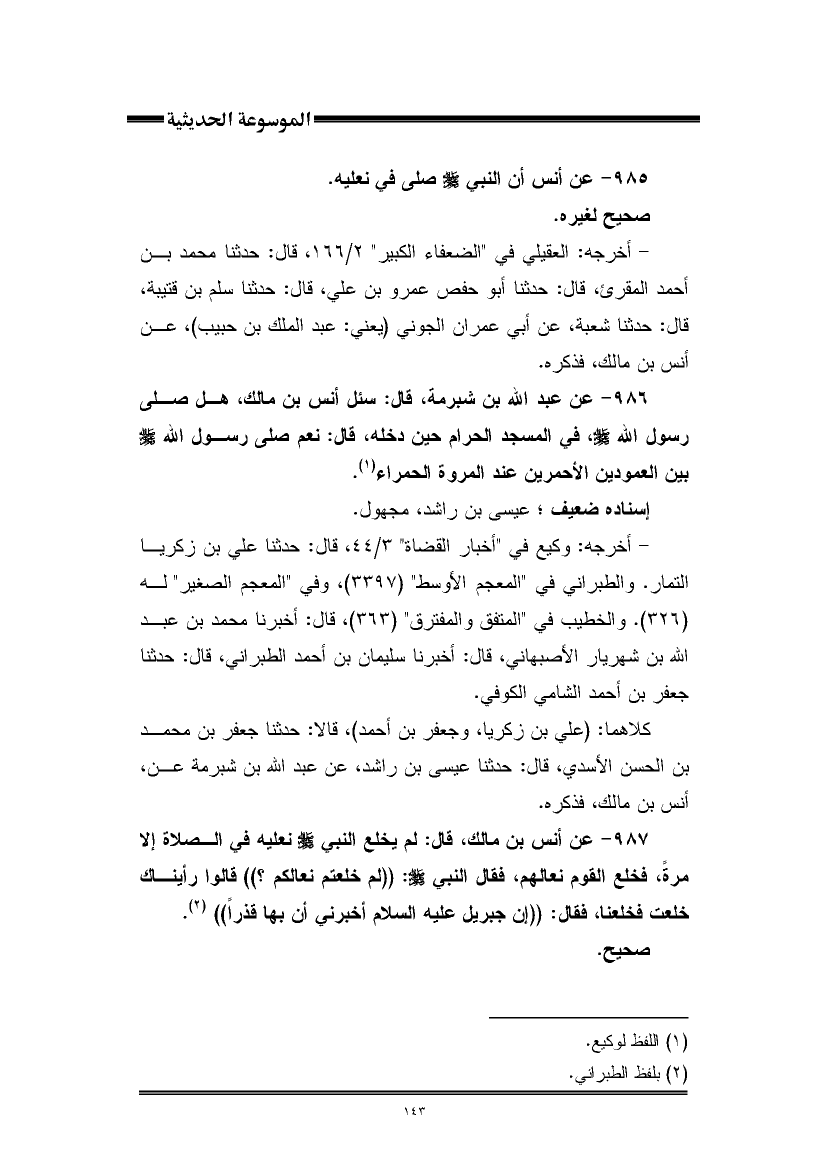 الموسوعة الحديثية
٩٨٥- عن أنس أن النبي ﷺ صلى في نعليه.
صحيح لغيره.
- أخرجه: العقيلي في "الضعفاء الكبير" ١٦٦/٢، قال: حدثنا محمد بن
أحمد المقرئ، قال: حدثنا أبو حفص عمرو بن علي، قال: حدثنا سلم بن قتيبة،
قال: حدثنا شعبة، عن أبي عمران الجوني (يعني: عبد الملك بن حبيب)، عن
أنس بن مالك، فذكره.
٩٨٦- عن عبد الله بن شبرمة، قال: سئل أنس بن مالك، هل صلى
رسول الله ﷺ، في المسجد الحرام حين دخله، قال: نعم صلى رسول الله ﷺ
بين العمودين الأحمرين عند المروة الحمراء(١).
إسناده ضعيف ؛ عيسى بن راشد، مجهول.
- أخرجه: وكيع في "أخبار القضاة" ٤٤/٣، قال: حدثنا علي بن زكريا
التمار. والطبراني في "المعجم الأوسط" (٣٣٩٧)، وفي "المعجم الصغير" له
(٣٢٦). والخطيب في "المتفق والمفترق" (٣٦٣)، قال: أخبرنا محمد بن عبد
الله بن شهريار الأصبهاني، قال: أخبرنا سليمان بن أحمد الطبراني، قال: حدثنا
جعفر بن أحمد الشامي الكوفي.
كلاهما: (علي بن زكريا، وجعفر بن أحمد)، قالا: حدثنا جعفر بن محمد
بن الحسن الأسدي، قال: حدثنا عيسى بن راشد، عن عبد الله بن شبرمة عن،
أنس بن مالك، فذكره.
٩٨٧- عن أنس بن مالك، قال: لم يخلع النبي ﷺ نعليه في الصلاة إلا
مرةً، فخلع القوم نعالهم، فقال النبي ﷺ: ((لم خلعتم نعالكم ؟)) قالوا رأيناك
خلعت فخلعنا، فقال: ((إن جبريل عليه السلام أخبرني أن بها قذراً)) (٢).
صحيح.
(١) اللفظ لوكيع.
(٢) بلفظ الطبراني.
١٤٣